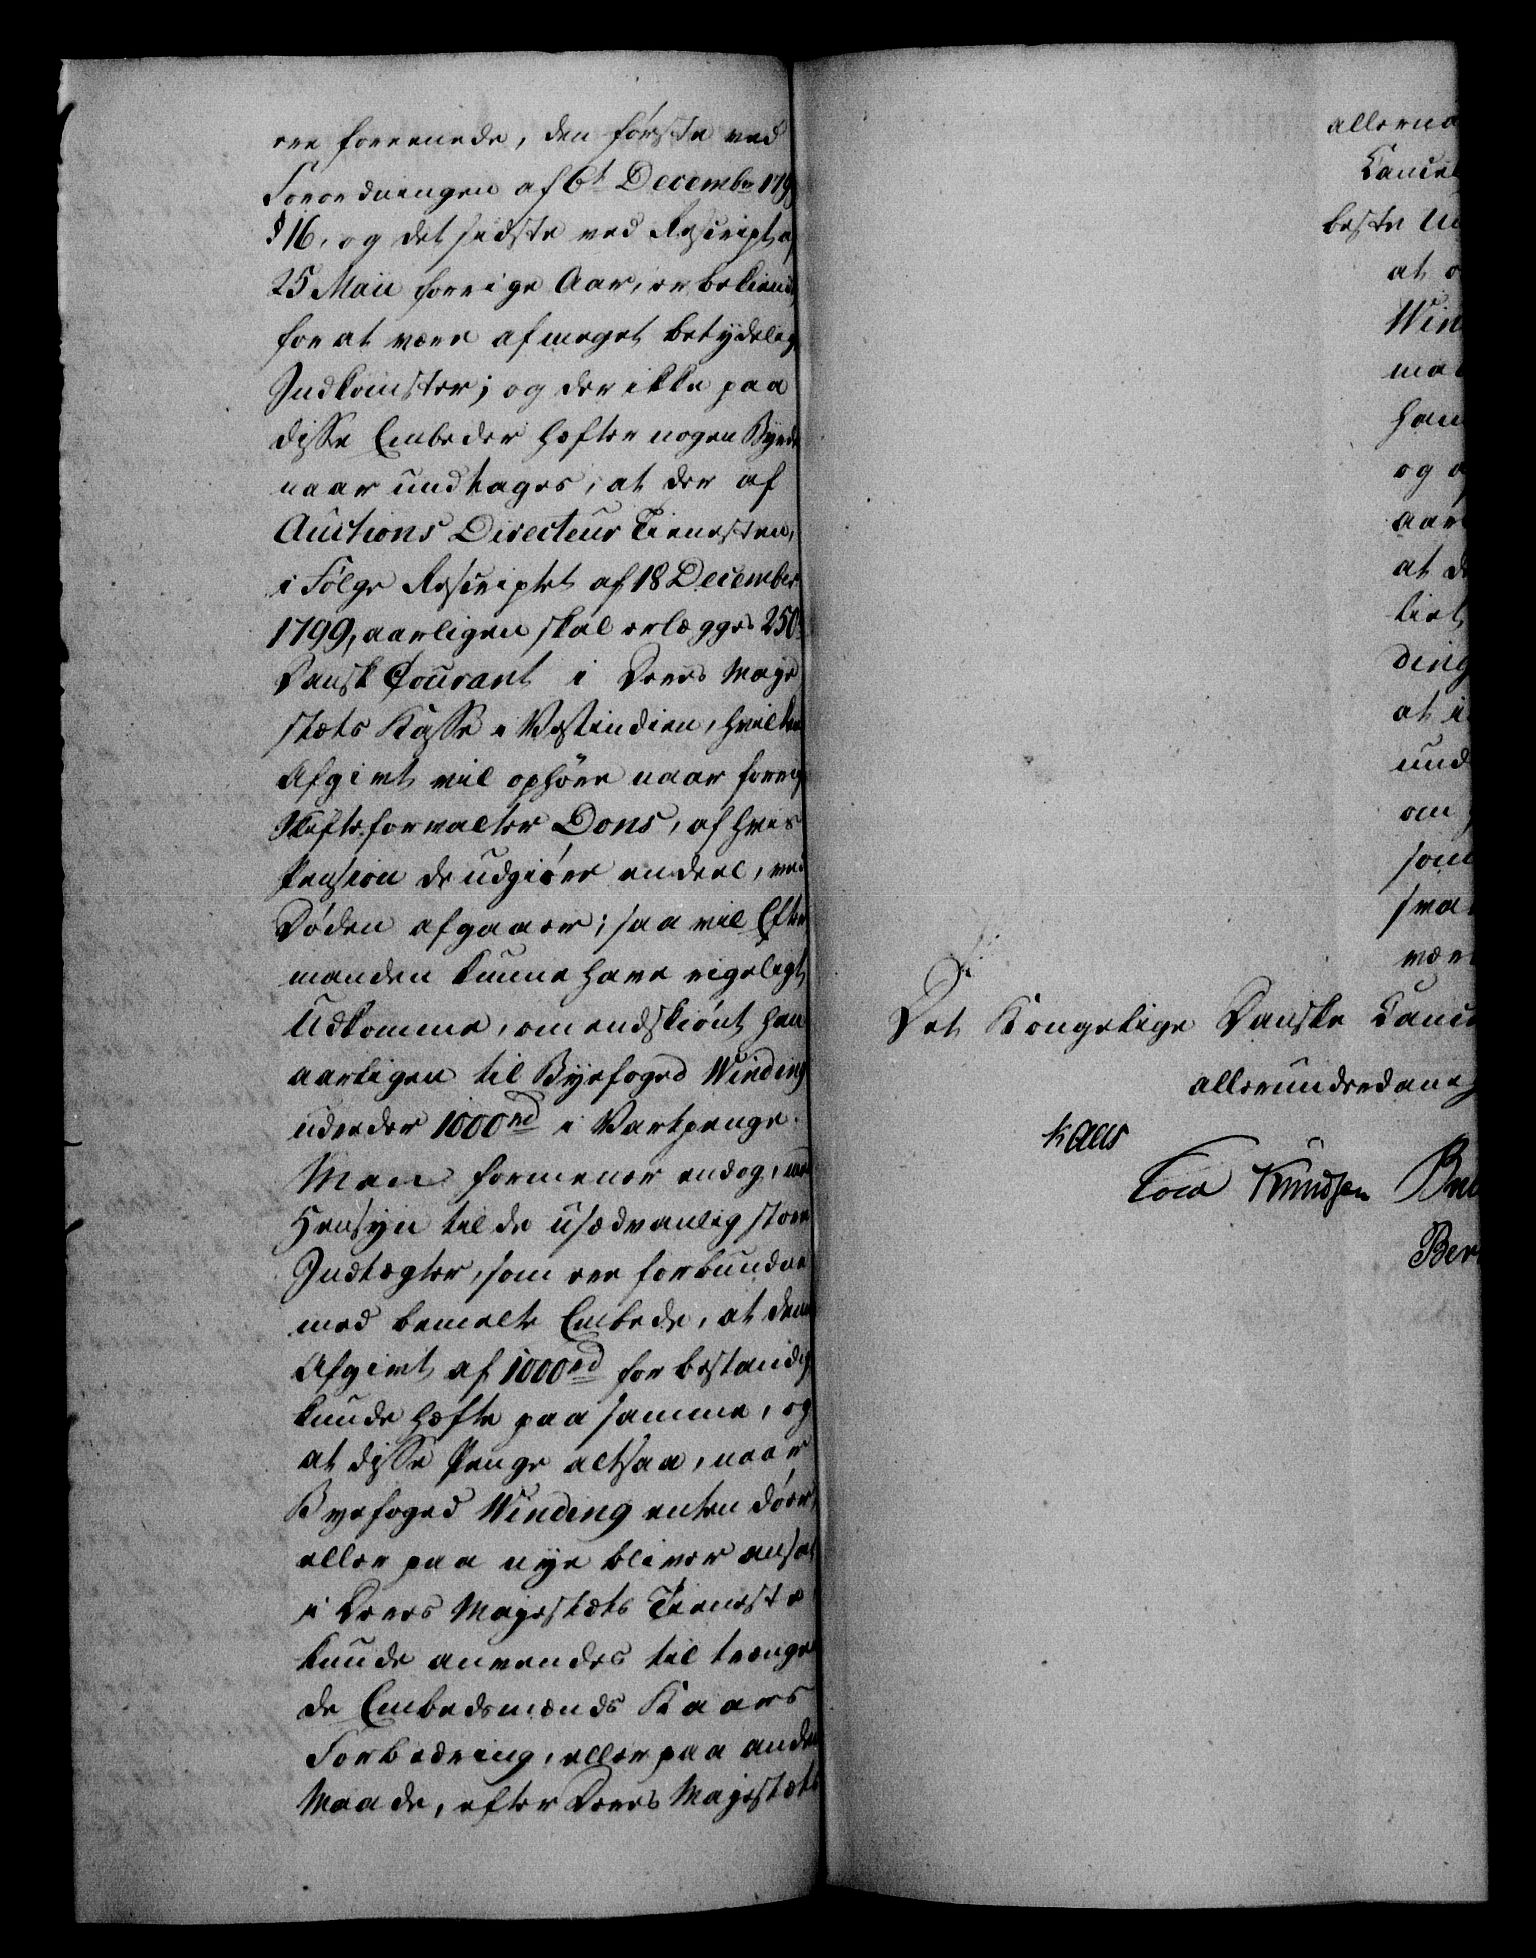 ere forenede, den første ved
Forordningen af 6t Decembr 179
§ 16, og det sidste ved Rescript af
25 Maii forrige Aar, er bekiendt
for at være af meget betydelig
Indkomster; og der ikke paa
disse Embeder hæfter nogen Byrde
naar undtages, at der af
Auctions Directeur Tienesten,
i Følge Rescriptet af 18 December
1799, aarligen skal erlægges 250
Dansk Courant i Deres Maje
stæts Kasse i Vestindien, hvilken
Afgivt vil ophøre naar forrige
Skifteforvalter Dons, af hvis
Pension de udgiøre en deel, ved
Døden afgaaer; saa vil Efter
manden kunne have rigeligt
Udkomme, omendskiønt han
aarligen til Byefoged Winding
udreder 1000 rd i Vartpenge.
Man formener endog, med
Hensyn til de usædvanlig store
Indtægter, som ere forbundne
med bemelte Embede, at denne
Afgivt af 1000 rd for bestandig
kunde hæfte paa samme, og
at disse Penge altsaa, naar
Byefoged Winding enten døer,
eller paa nye bliver ansat
i Deres Majestæts Tieneste
kunde anvendes til trænge
de Embedsmænds Kaars
Forbedring, eller paa anden
Maade, efter Deres Majestæts
allerna
Cancel
beste
at
Win
han
og
aar
at
ding
at
und
om
som
svar
være
Det Kongelige Danske Cance
allerunderdanig
Kaas
Cold Knudsen
Ber